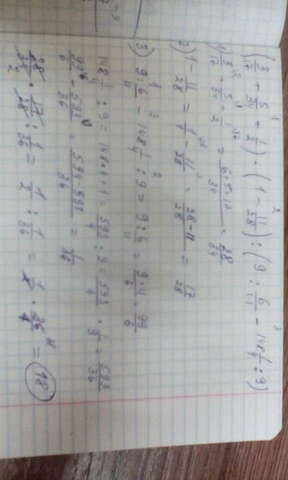 (3/17 + 5/34 + 1/2) · (1 - 11/28) : (9 : 6/11 - 148 1/4 : 9)
1) 3/17 + 5/34 + 1/2 = (6+5+17)/34 = 28/34
2) 1 - 11/28 = 1/1 - 11/28 = (28-11)/28 = 17/28
3) 9 : 6/11 - 148 1/4 : 9 = 9 : 6/11 = (9·11)/6 = 99/6
148 1/4 : 9 = 148·4+1 = 593/4 : 9 = 593/4 · 1/9 = 593/36
99/6 - 593/36 = (594-593)/36 = 1/36
28/34 · 17/28 : 1/36 = 1/2 : 1/36 = 1/2 · 36/1 = 18